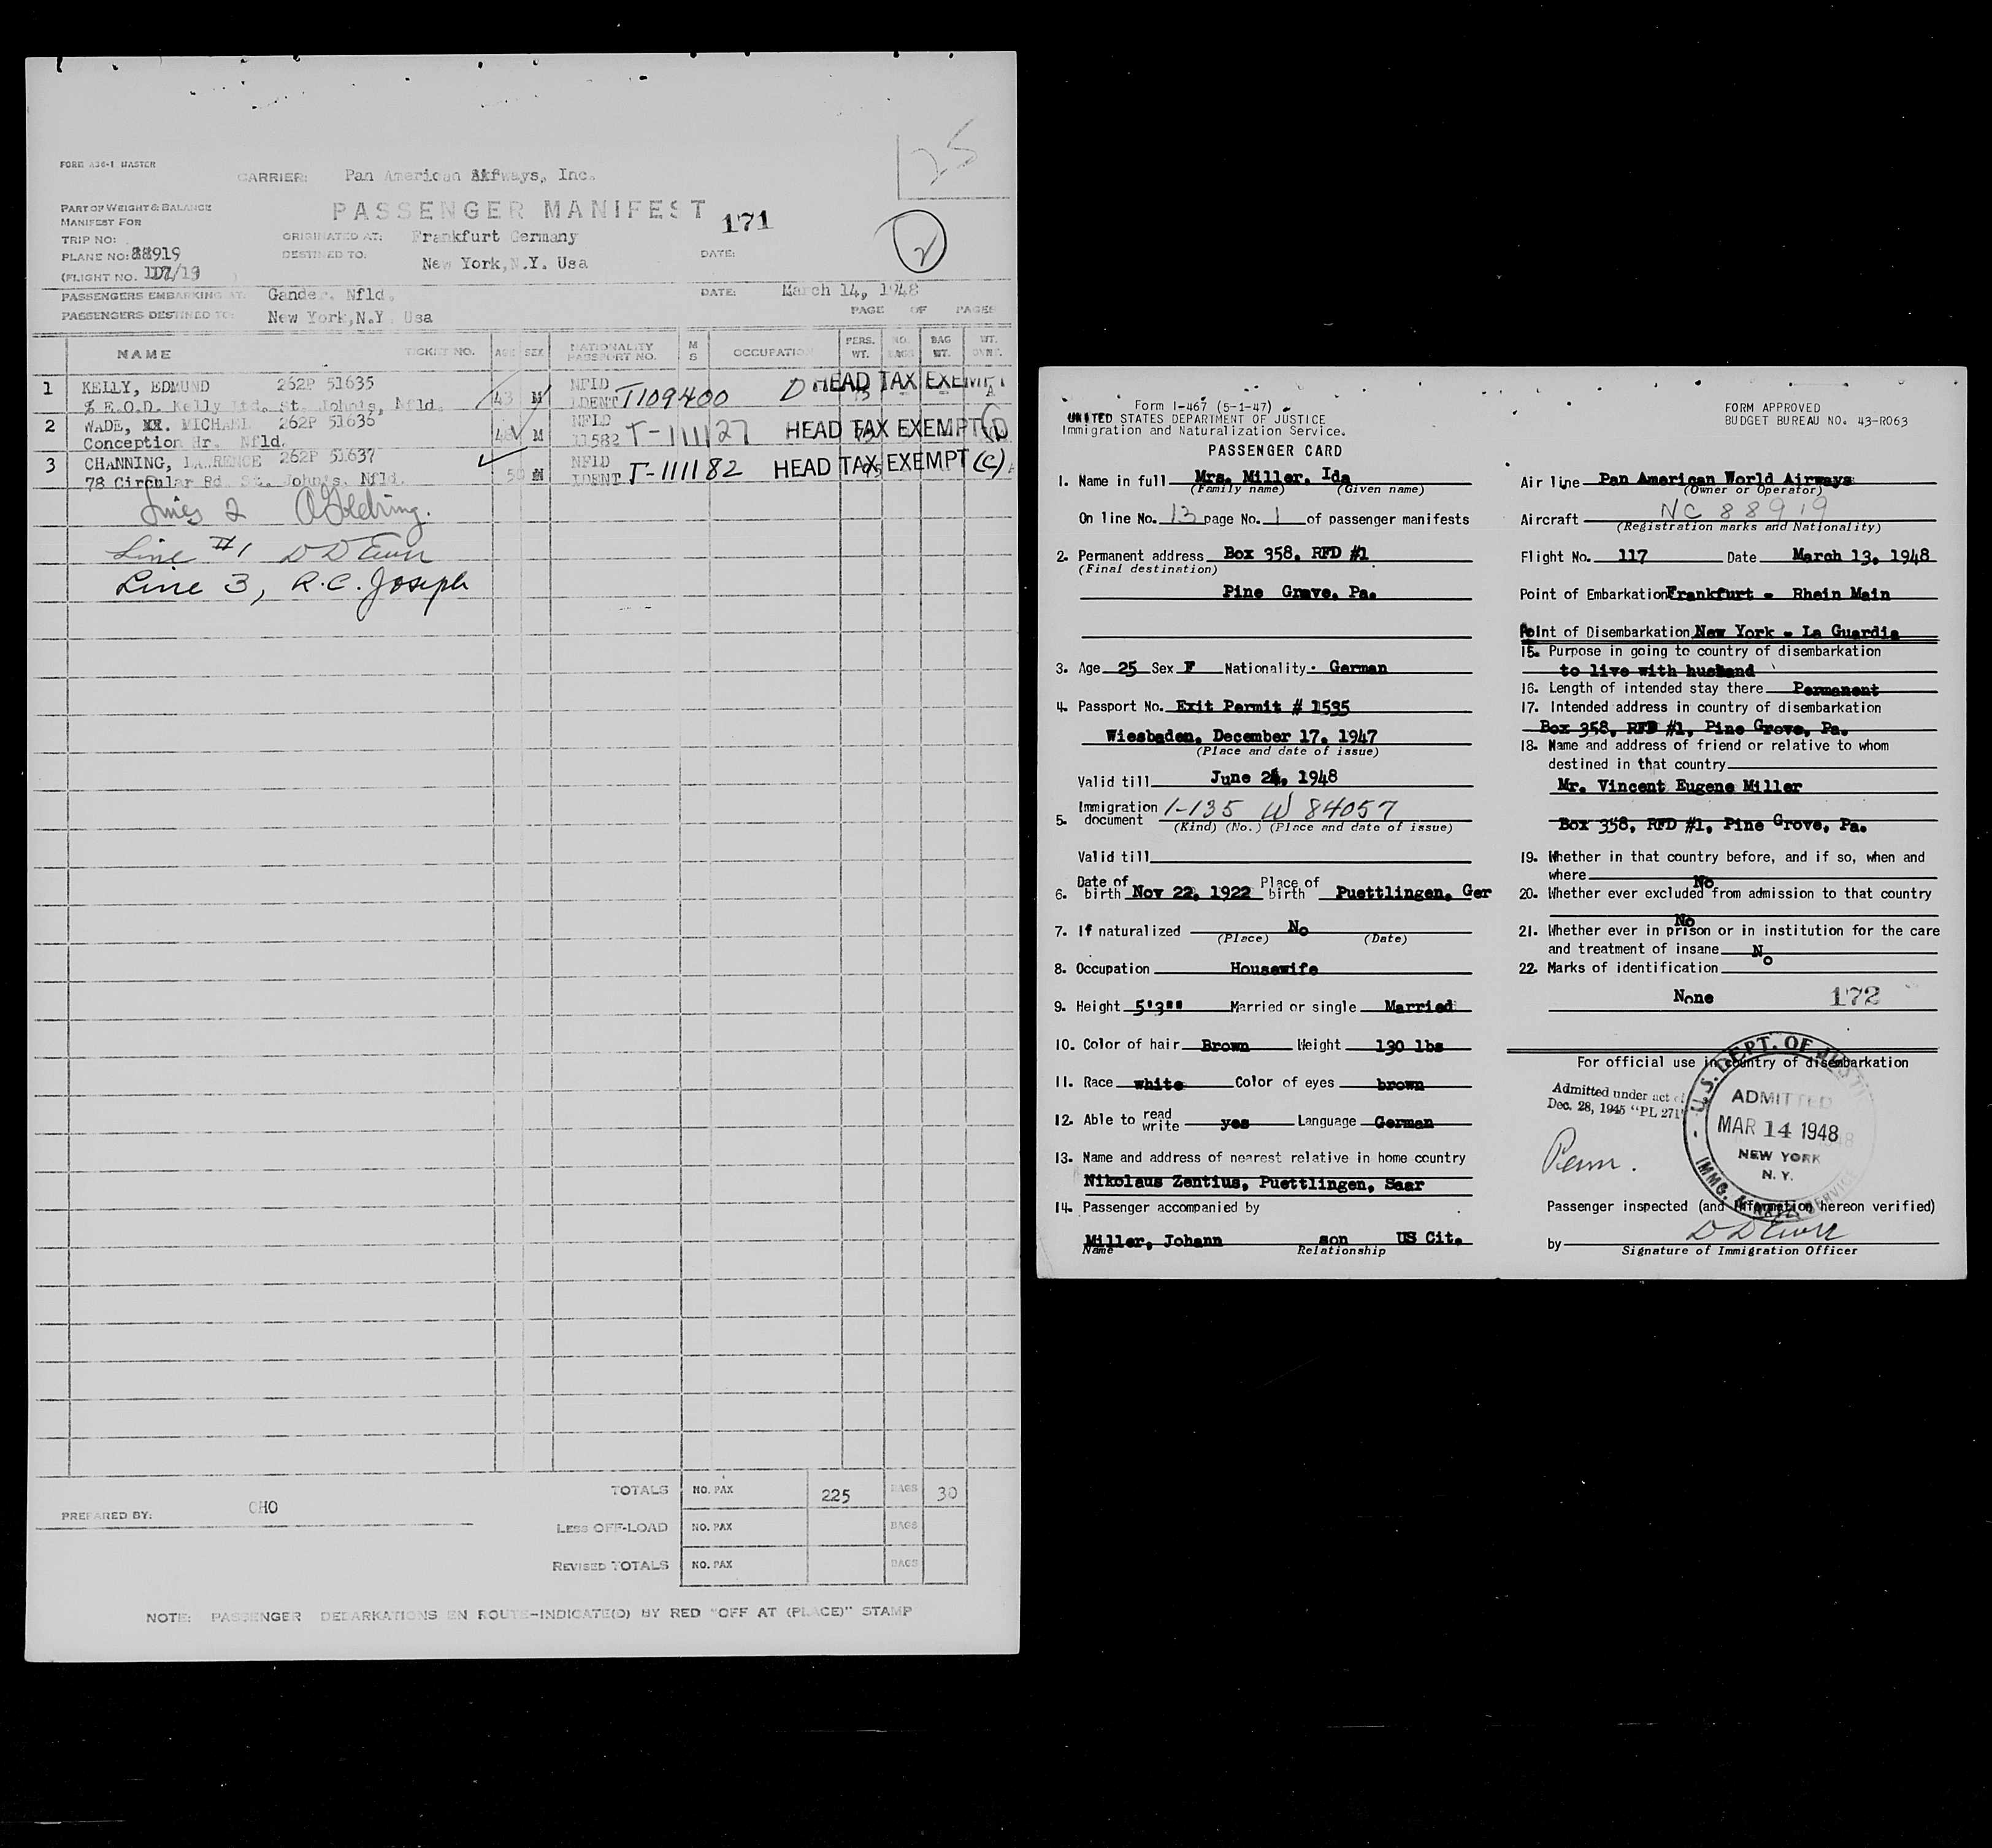 25
FORM A36-1 MASTER
CARRIER: Pan American Airways, Inc.
PART OF WEIGHT & BALANCE
MANIFEST FOR
PASSENGER MANIFEST 171
2
TRIP NO:
ORIGINATED AT: Frankfurt Germany
PLANE NO: 88919
DESTINED TO: New York, N.Y. Usa
DATE:
(FLIGHT NO. 117/13 )
PASSENGERS EMBARKING AT: Gander, Nfld. DATE: March 14, 1948
PASSENGERS DESTINED TO: New York, N.Y. Usa PAGE OF PAGES
NAME TICKET NO. AGE SEX NATIONALITY PASSPORT NO. M S OCCUPATION PERS. WT. NO. BAGS BAG WT. WT. OVWT.
1 KELLY, EDMUND 262P 51635 43 M NFLD IDENT T109400 D HEAD TAX EXEMPT
% E.O.D. Kelly Ltd. St. John's, Nfld.
2 WADE, MICHAEL 262P 51636 48 M NFLD 11582 T-111127 HEAD TAX EXEMPT
Conception Hr. Nfld.
3 CHANNING, LAWRENCE 262P 51637 50 M NFLD IDENT T-111182 HEAD TAX EXEMPT (C)
78 Circular Rd St. John's, Nfld.
Lines 2
Line #1 D D
Line 3, R.C. Joseph
TOTALS NO. PAX 225 BAGS 30
PREPARED BY: CHO
LESS OFF-LOAD NO. PAX BAGS
REVISED TOTALS NO. PAX BAGS
NOTE: PASSENGER DEBARKATIONS EN ROUTE-INDICATE(D) BY RED "OFF AT (PLACE)" STAMP
Form I-467 (5-1-47)
UNITED STATES DEPARTMENT OF JUSTICE
Immigration and Naturalization Service.
FORM APPROVED
BUDGET BUREAU NO. 43-R063
PASSENGER CARD
1. Name in full Mrs. Miller, Ida
(Family name) (Given name)
On line No. 13 page No. 1 of passenger manifests
2. Permanent address Box 358, RFD #1
(Final destination)
Pine Grove, Pa.
3. Age 25 Sex F Nationality German
4. Passport No. Exit Permit # 1535
Wiesbaden, December 17, 1947
(Place and date of issue)
Valid till June 24, 1948
5. Immigration document I-135 W 84057
(Kind) (No.) (Place and date of issue)
Valid till
6. Date of birth Nov 22, 1922 Place of birth Puettlingen, Ger
7. If naturalized No
(Place) (Date)
8. Occupation Housewife
9. Height 5'3"" Married or single Married
10. Color of hair Brown Weight 130 lbs
11. Race white Color of eyes brown
12. Able to read write yes Language German
13. Name and address of nearest relative in home country
Nikolaus Zentius, Puettlingen, Saar
14. Passenger accompanied by
Miller, Johann son US Cit.
Name Relationship
Air line Pan American World Airways
(Owner or Operator)
Aircraft NC 88919
(Registration marks and Nationality)
Flight No. 117 Date March 13, 1948
Point of Embarkation Frankfurt - Rhein Main
Point of Disembarkation New York - La Guardia
15. Purpose in going to country of disembarkation
to live with husband
16. Length of intended stay there Permanent
17. Intended address in country of disembarkation
Box 358, RFD #1, Pine Grove, Pa.
18. Name and address of friend or relative to whom
destined in that country
Mr. Vincent Eugene Miller
Box 358, RFD #1, Pine Grove, Pa.
19. Whether in that country before, and if so, when and
where No
20. Whether ever excluded from admission to that country
No
21. Whether ever in prison or in institution for the care
and treatment of insane No
22. Marks of identification
None 172
For official use in country of disembarkation
Admitted under act of
Dec. 28, 1945 "PL 271"
U.S. DEPT. OF JUSTICE
ADMITTED
MAR 14 1948
NEW YORK
N. Y.
IMMG. & NATZ. SERVICE
Penn.
Passenger inspected (and information hereon verified)
by
Signature of Immigration Officer